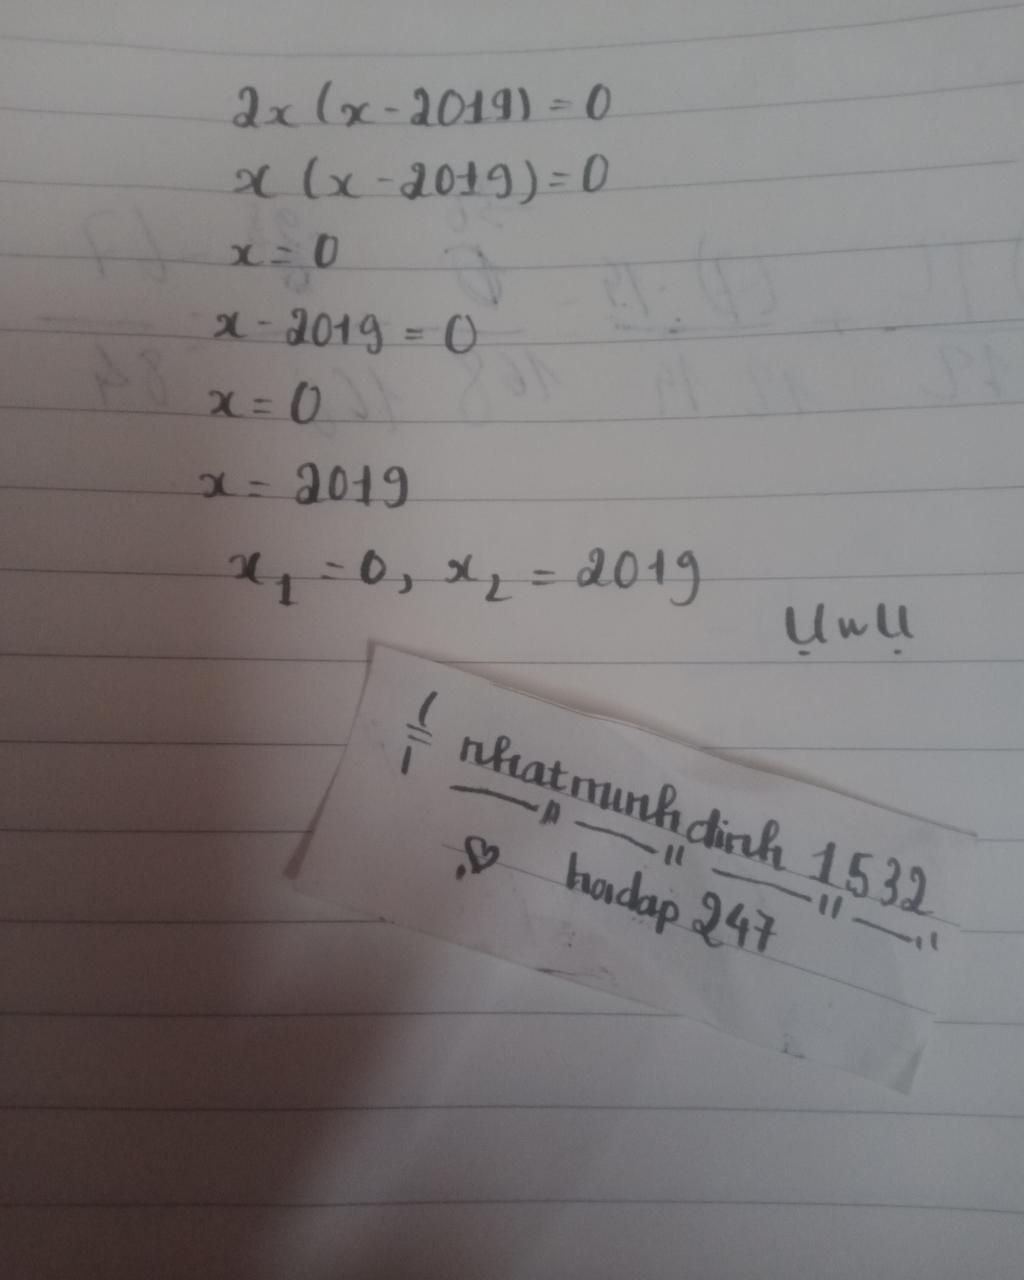 2x (x - 2019) = 0
x (x - 2019) = 0
x = 0
x - 2019 = 0
x = 0
x = 2019
x₁ = 0, x₂ = 2019
ỤwỤ
nhatminhdinh 1532
hoidap 247